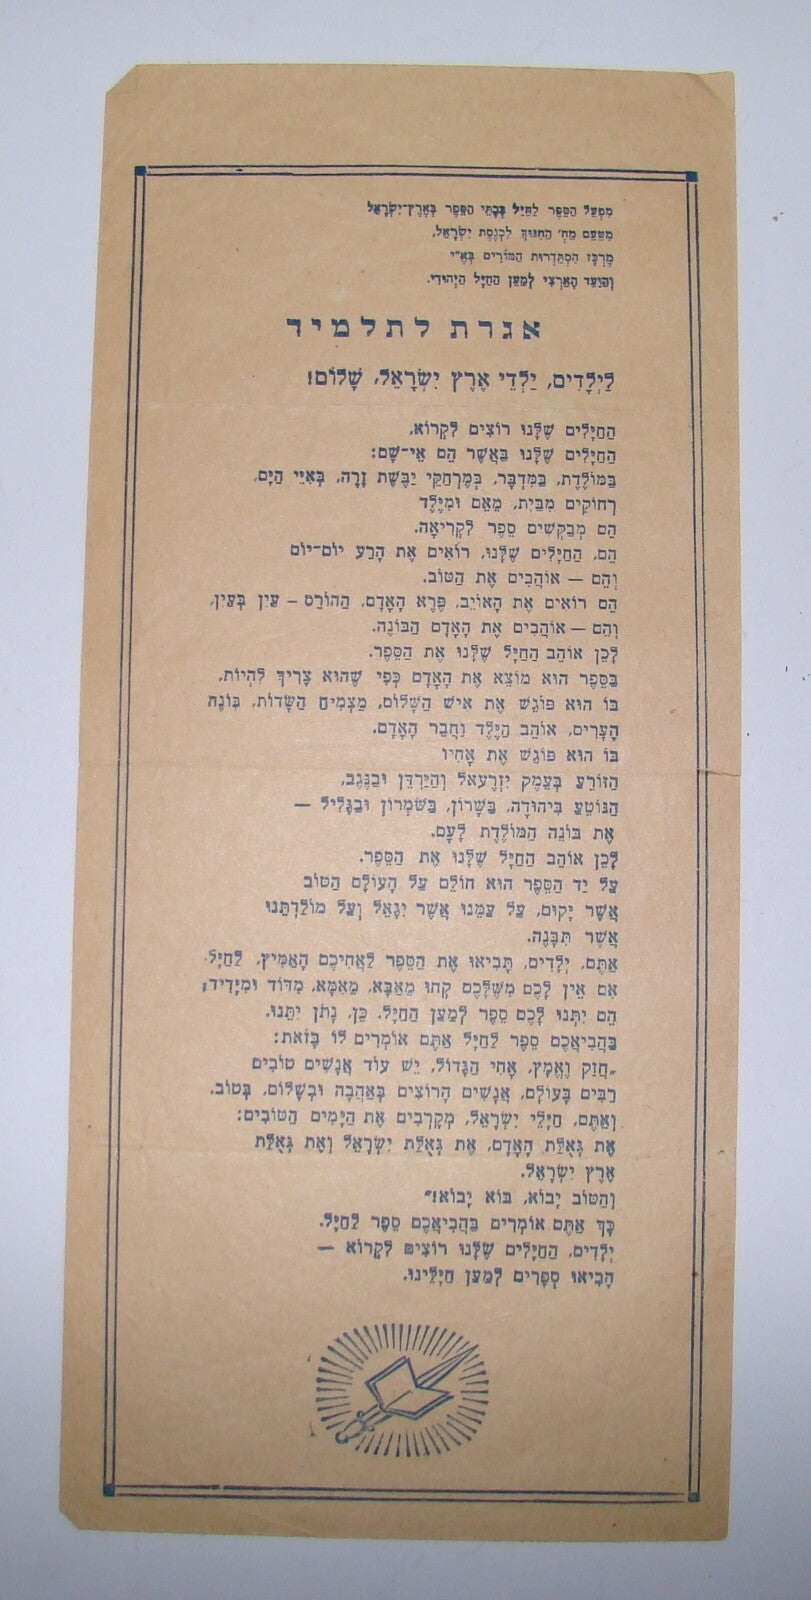 מִפְעַל הַסֵּפֶר לַחַיָּל בְּבָתֵּי הַסֵּפֶר בְּאֶרֶץ־יִשְׂרָאֵל
מִטַּעַם מַח' הַחִנּוּךְ לִכְנֶסֶת יִשְׂרָאֵל,
מֶרְכַּז הִסְתַּדְּרוּת הַמּוֹרִים בְּא"י
וְהַוַּעַד הָאַרְצִי לְמַעַן הַחַיָּל הַיְּהוּדִי.
אגרת לתלמיד
לַיְלָדִים, יַלְדֵי אֶרֶץ יִשְׂרָאֵל, שָׁלוֹם!
הַחַיָּלִים שֶׁלָּנוּ רוֹצִים לִקְרוֹא,
הַחַיָּלִים שֶׁלָּנוּ בַּאֲשֶׁר הֵם אֵי־שָׁם:
בַּמּוֹלֶדֶת, בַּמִּדְבָּר, בְּמֶרְחַקֵּי יַבֶּשֶׁת זָרָה, בְּאִיֵּי הַיָּם,
רְחוֹקִים מִבַּיִת, מֵאֵם וּמִיֶּלֶד
הֵם מְבַקְשִׁים סֵפֶר לִקְרִיאָה.
הֵם, הַחַיָּלִים שֶׁלָּנוּ, רוֹאִים אֶת הָרַע יוֹם־יוֹם
וְהֵם — אוֹהֲבִים אֶת הַטּוֹב.
הֵם רוֹאִים אֶת הָאוֹיֵב, פֶּרֶא הָאָדָם, הַהוֹרֵס – עַיִן בְּעַיִן,
וְהֵם — אוֹהֲבִים אֶת הָאָדָם הַבּוֹנֶה.
לָכֵן אוֹהֵב הַחַיָּל שֶׁלָּנוּ אֶת הַסֵּפֶר.
בַּסֵּפֶר הוּא מוֹצֵא אֶת הָאָדָם כְּפִי שֶׁהוּא צָרִיךְ לִהְיוֹת,
בּוֹ הוּא פּוֹגֵשׁ אֶת אִישׁ הַשָּׁלוֹם, מַצְמִיחַ הַשָּׂדוֹת, בּוֹנֶה
הֶעָרִים, אוֹהֵב הַיֶּלֶד וַחֲבֵר הָאָדָם.
בּוֹ הוּא פּוֹגֵשׁ אֶת אָחִיו
הַזּוֹרֵעַ בְּעֵמֶק יִזְרְעֶאל וְהַיַּרְדֵּן וּבַנֶּגֶב,
הַנּוֹטֵעַ בִּיהוּדָה, בַּשָּׁרוֹן, בַּשֹּׁמְרוֹן וּבַגָּלִיל —
אֶת בּוֹנֵה הַמּוֹלֶדֶת לָעָם.
לָכֵן אוֹהֵב הַחַיָּל שֶׁלָּנוּ אֶת הַסֵּפֶר.
עַל יַד הַסֵּפֶר הוּא חוֹלֵם עַל הָעוֹלָם הַטּוֹב
אֲשֶׁר יָקוּם, עַל עַמֵּנוּ אֲשֶׁר יִגָּאֵל וְעַל מוֹלַדְתֵּנוּ
אֲשֶׁר תִּבָּנֶה.
אַתֶּם, יְלָדִים, תָּבִיאוּ אֶת הַסֵּפֶר לַאֲחִיכֶם הָאַמִּיץ, לַחַיָּל.
אִם אֵין לָכֶם מִשֶּׁלָּכֶם קְחוּ מֵאַבָּא, מֵאִמָּא, מִדּוֹד וּמִיָּדִיד;
הֵם יִתְּנוּ לָכֶם סֵפֶר לְמַעַן הַחַיָּל. כֵּן, נָתֹן יִתְּנוּ.
בַּהֲבִיאֲכֶם סֵפֶר לַחַיָּל אַתֶּם אוֹמְרִים לוֹ בָּזֹאת:
„חֲזַק וֶאֱמָץ, אָחִי הַגָּדוֹל, יֵשׁ עוֹד אֲנָשִׁים טוֹבִים
רַבִּים בָּעוֹלָם, אֲנָשִׁים הָרוֹצִים בְּאַהֲבָה וּבְשָׁלוֹם, בְּטוֹב.
וְאַתֶּם, חַיָּלֵי יִשְׂרָאֵל, מְקָרְבִים אֶת הַיָּמִים הַטּוֹבִים:
אֶת גְּאֻלַּת הָאָדָם, אֶת גְּאֻלַּת יִשְׂרָאֵל וְאֶת גְּאֻלַּת
אֶרֶץ יִשְׂרָאֵל.
וְהַטּוֹב יָבוֹא, בּוֹא יָבוֹא!"
כָּךְ אַתֶּם אוֹמְרִים בַּהֲבִיאֲכֶם סֵפֶר לַחַיָּל.
יְלָדִים, הַחַיָּלִים שֶׁלָּנוּ רוֹצִים לִקְרוֹא —
הָבִיאוּ סְפָרִים לְמַעַן חַיָּלֵינוּ.